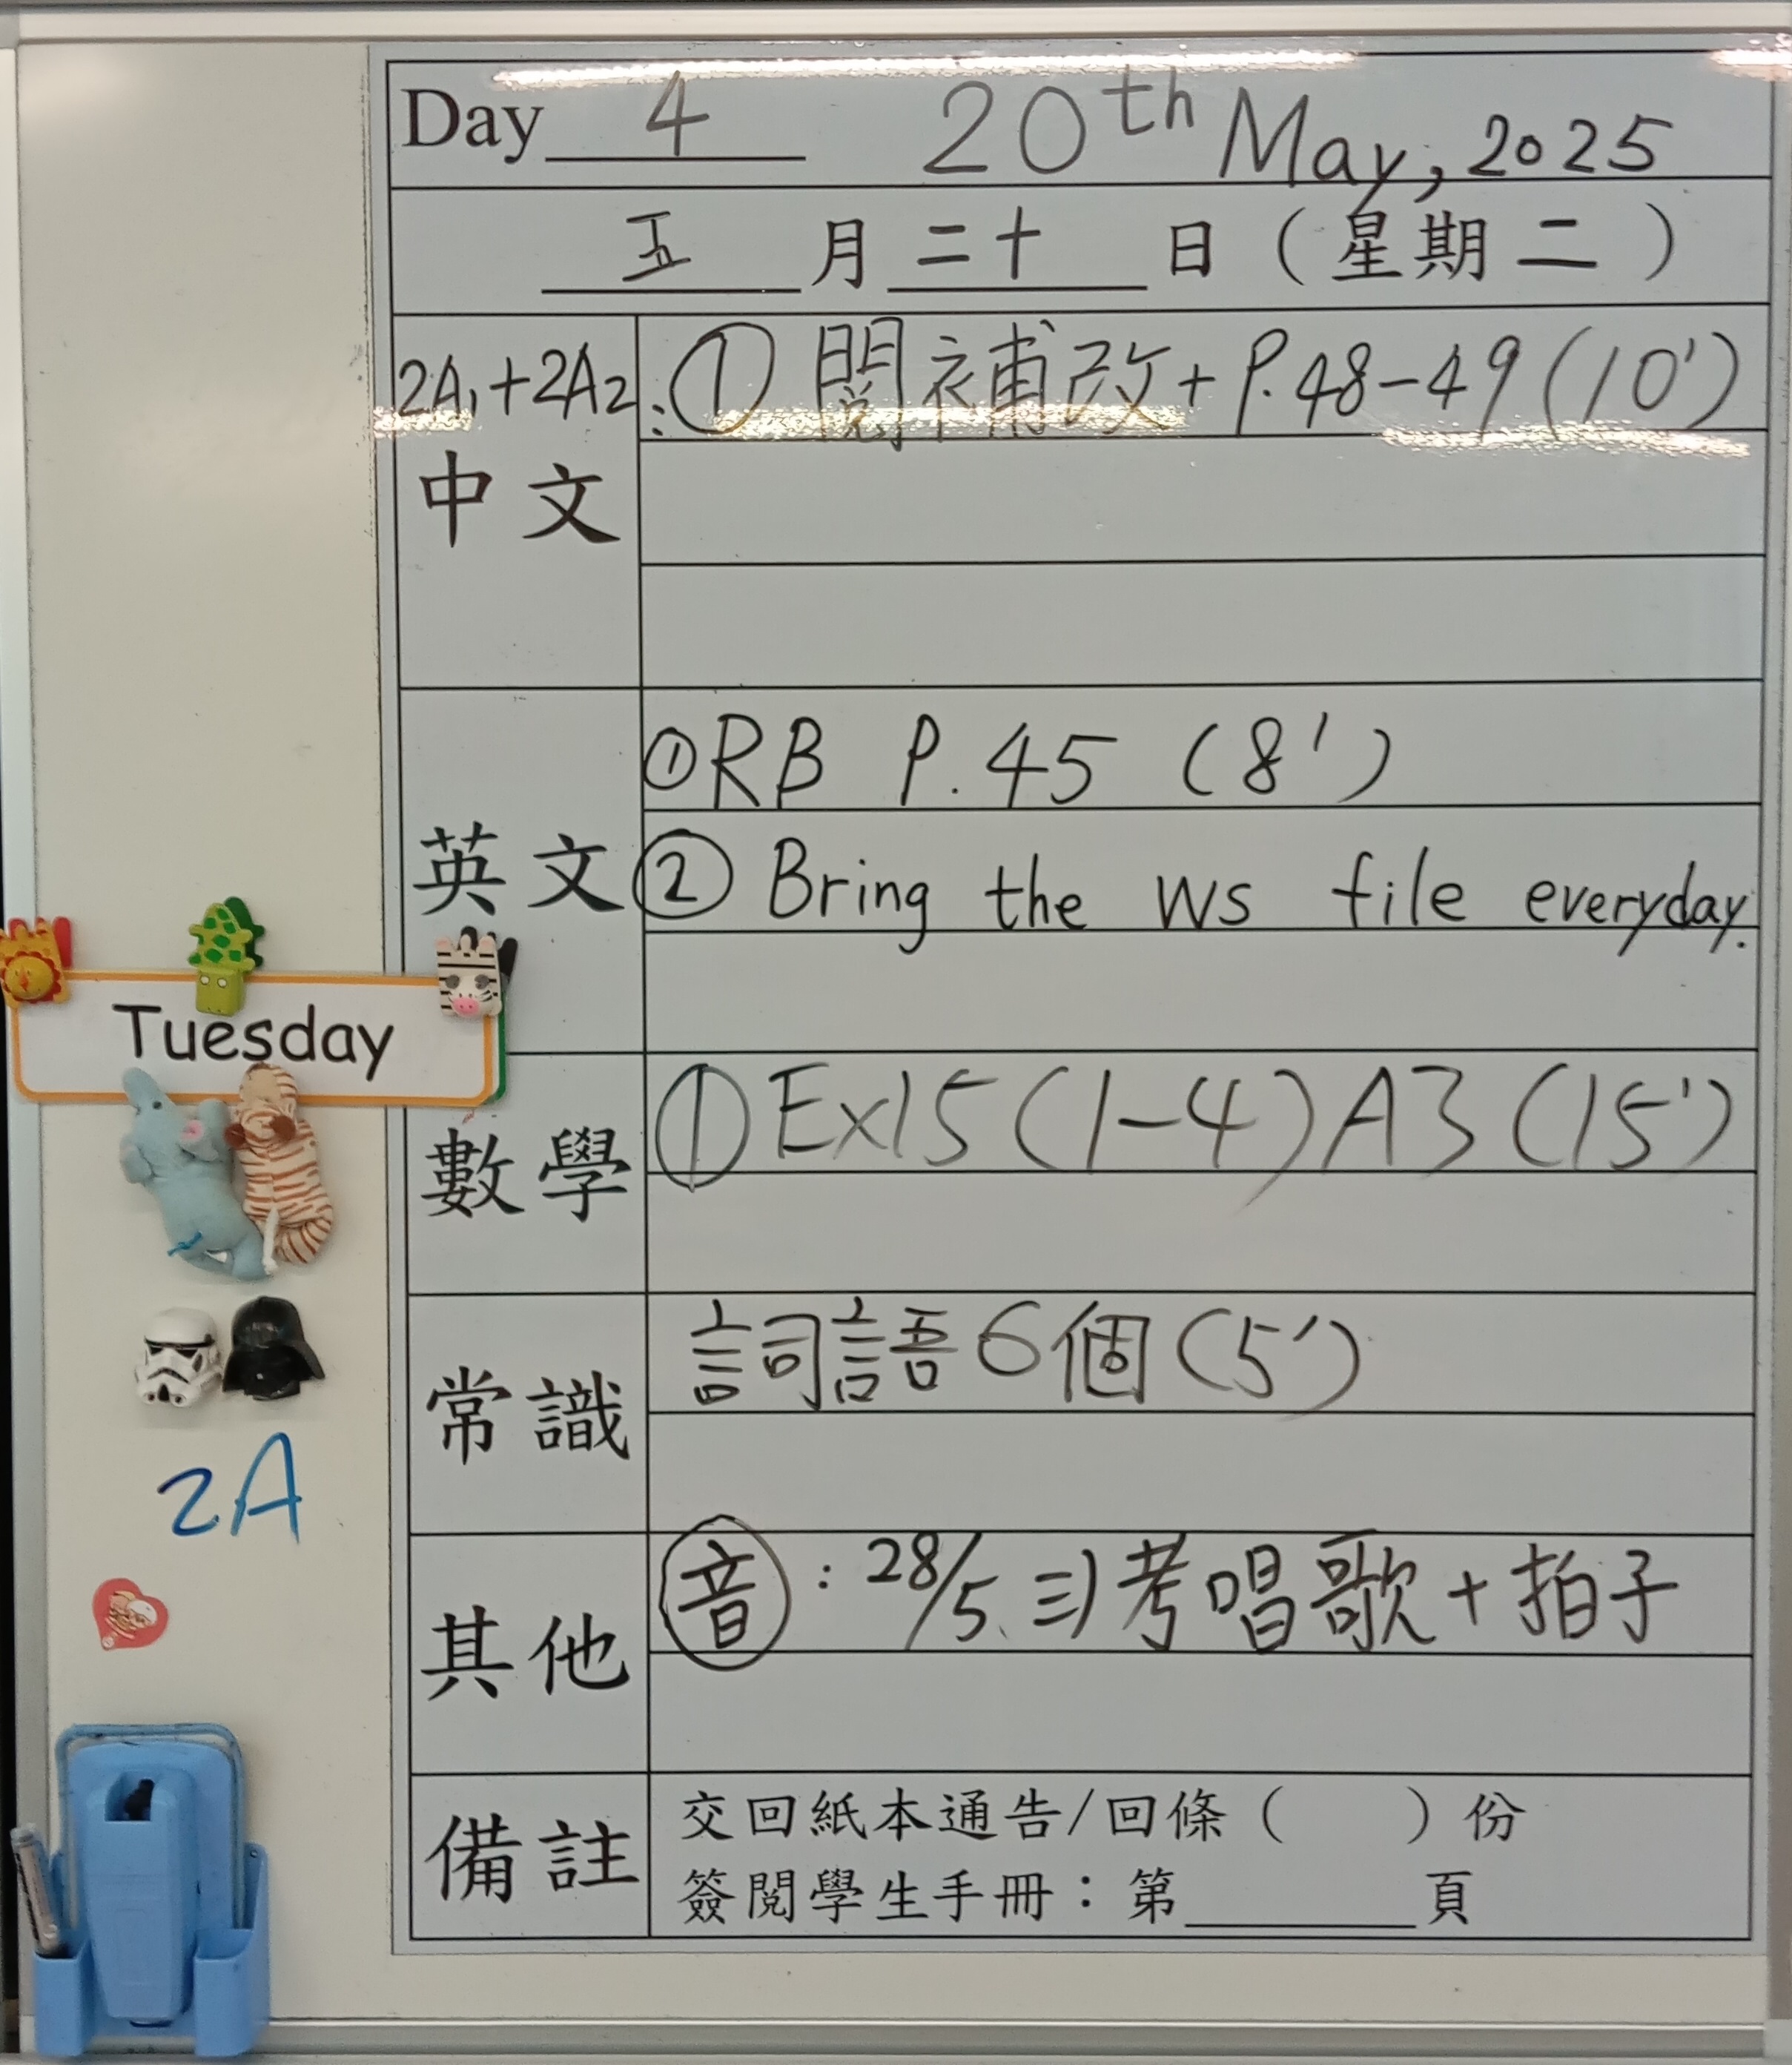 Day 4 20th May, 2025
五 月 二十 日 （星期 二 ）
2A1+2A2: ① 閱補改+P.48-49(10')
中文
① RB P.45 (8')
英文 ② Bring the WS file everyday.
Tuesday
數學 ① Ex15(1-4)A3(15')
常識 詞語6個(5')
2A
其他 音 : 28/5 (三)考唱歌+拍子
備註 交回紙本通告/回條（ ）份
簽閱學生手冊：第 頁